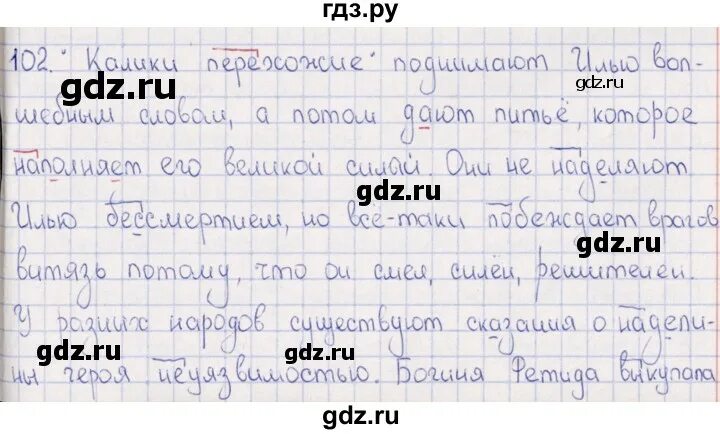 гдз.ру
102. "Калики перехожие" поднимают Илью вол-
шебным словом, а потом дают питьё, которое
наполняет его великой силой. Они не наделяют
Илью бессмертием, но всё-таки побеждает врагов
витязь потому, что он смел, силён, решителен.
У разных народов существуют сказания о
ны героя неуязвимостью. Богиня Фетида выкупала
gdz.ru
gdz.ru
gdz.ru
gdz.ru
gdz.ru
gdz.ru
gdz.ru
gdz.ru
gdz.ru
gdz.ru
gdz.ru
gdz.ru